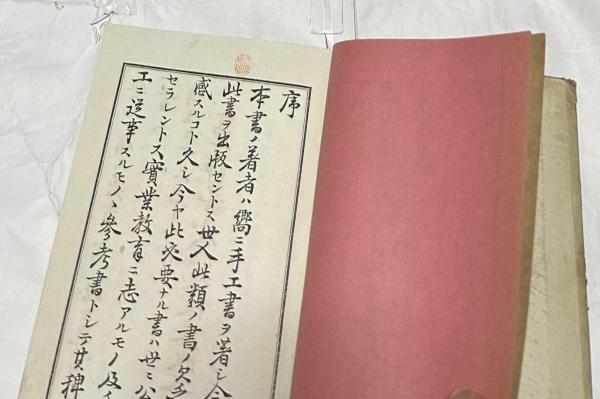 序
本書ノ著者ハ嚮ニ手工書ヲ著シ今
此書ヲ出版セントス世人此類ノ書ノ欠乏
感スルコト久シ今ヤ此必要ナル書ハ世ニ公
セラレントス實業教育ニ志アルモノ及
工ニ從事スルモノヽ參考書トシテ其稗